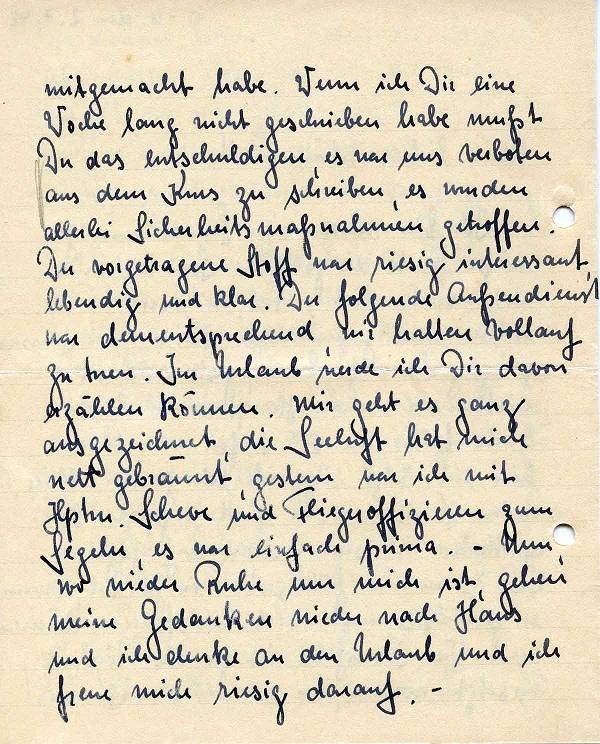 mitgemacht habe. Wenn ich Dir eine
Woche lang nicht geschrieben habe mußt
Du das entschuldigen, es war uns verboten
aus dem Kurs zu schreiben, es wurden
allerlei Sicherheitsmaßnahmen getroffen.
Der vorgetragene Stoff war riesig interessant,
lebendig und klar. Der folgende Außendienst
war dementsprechend, wir hatten vollauf
zu tuen. Im Urlaub werde ich Dir davon
erzählen können. Mir geht es ganz
ausgezeichnet, die Seeluft hat mich
nett gebräunt, gestern war ich mit
Hptm. Scheve und Fliegeroffizieren zum
Segeln, es war einfach prima. - Nun
wo wieder Ruhe um mich ist, gehen
meine Gedanken wieder nach Haus
und ich denke an den Urlaub und ich
freue mich riesig darauf. -